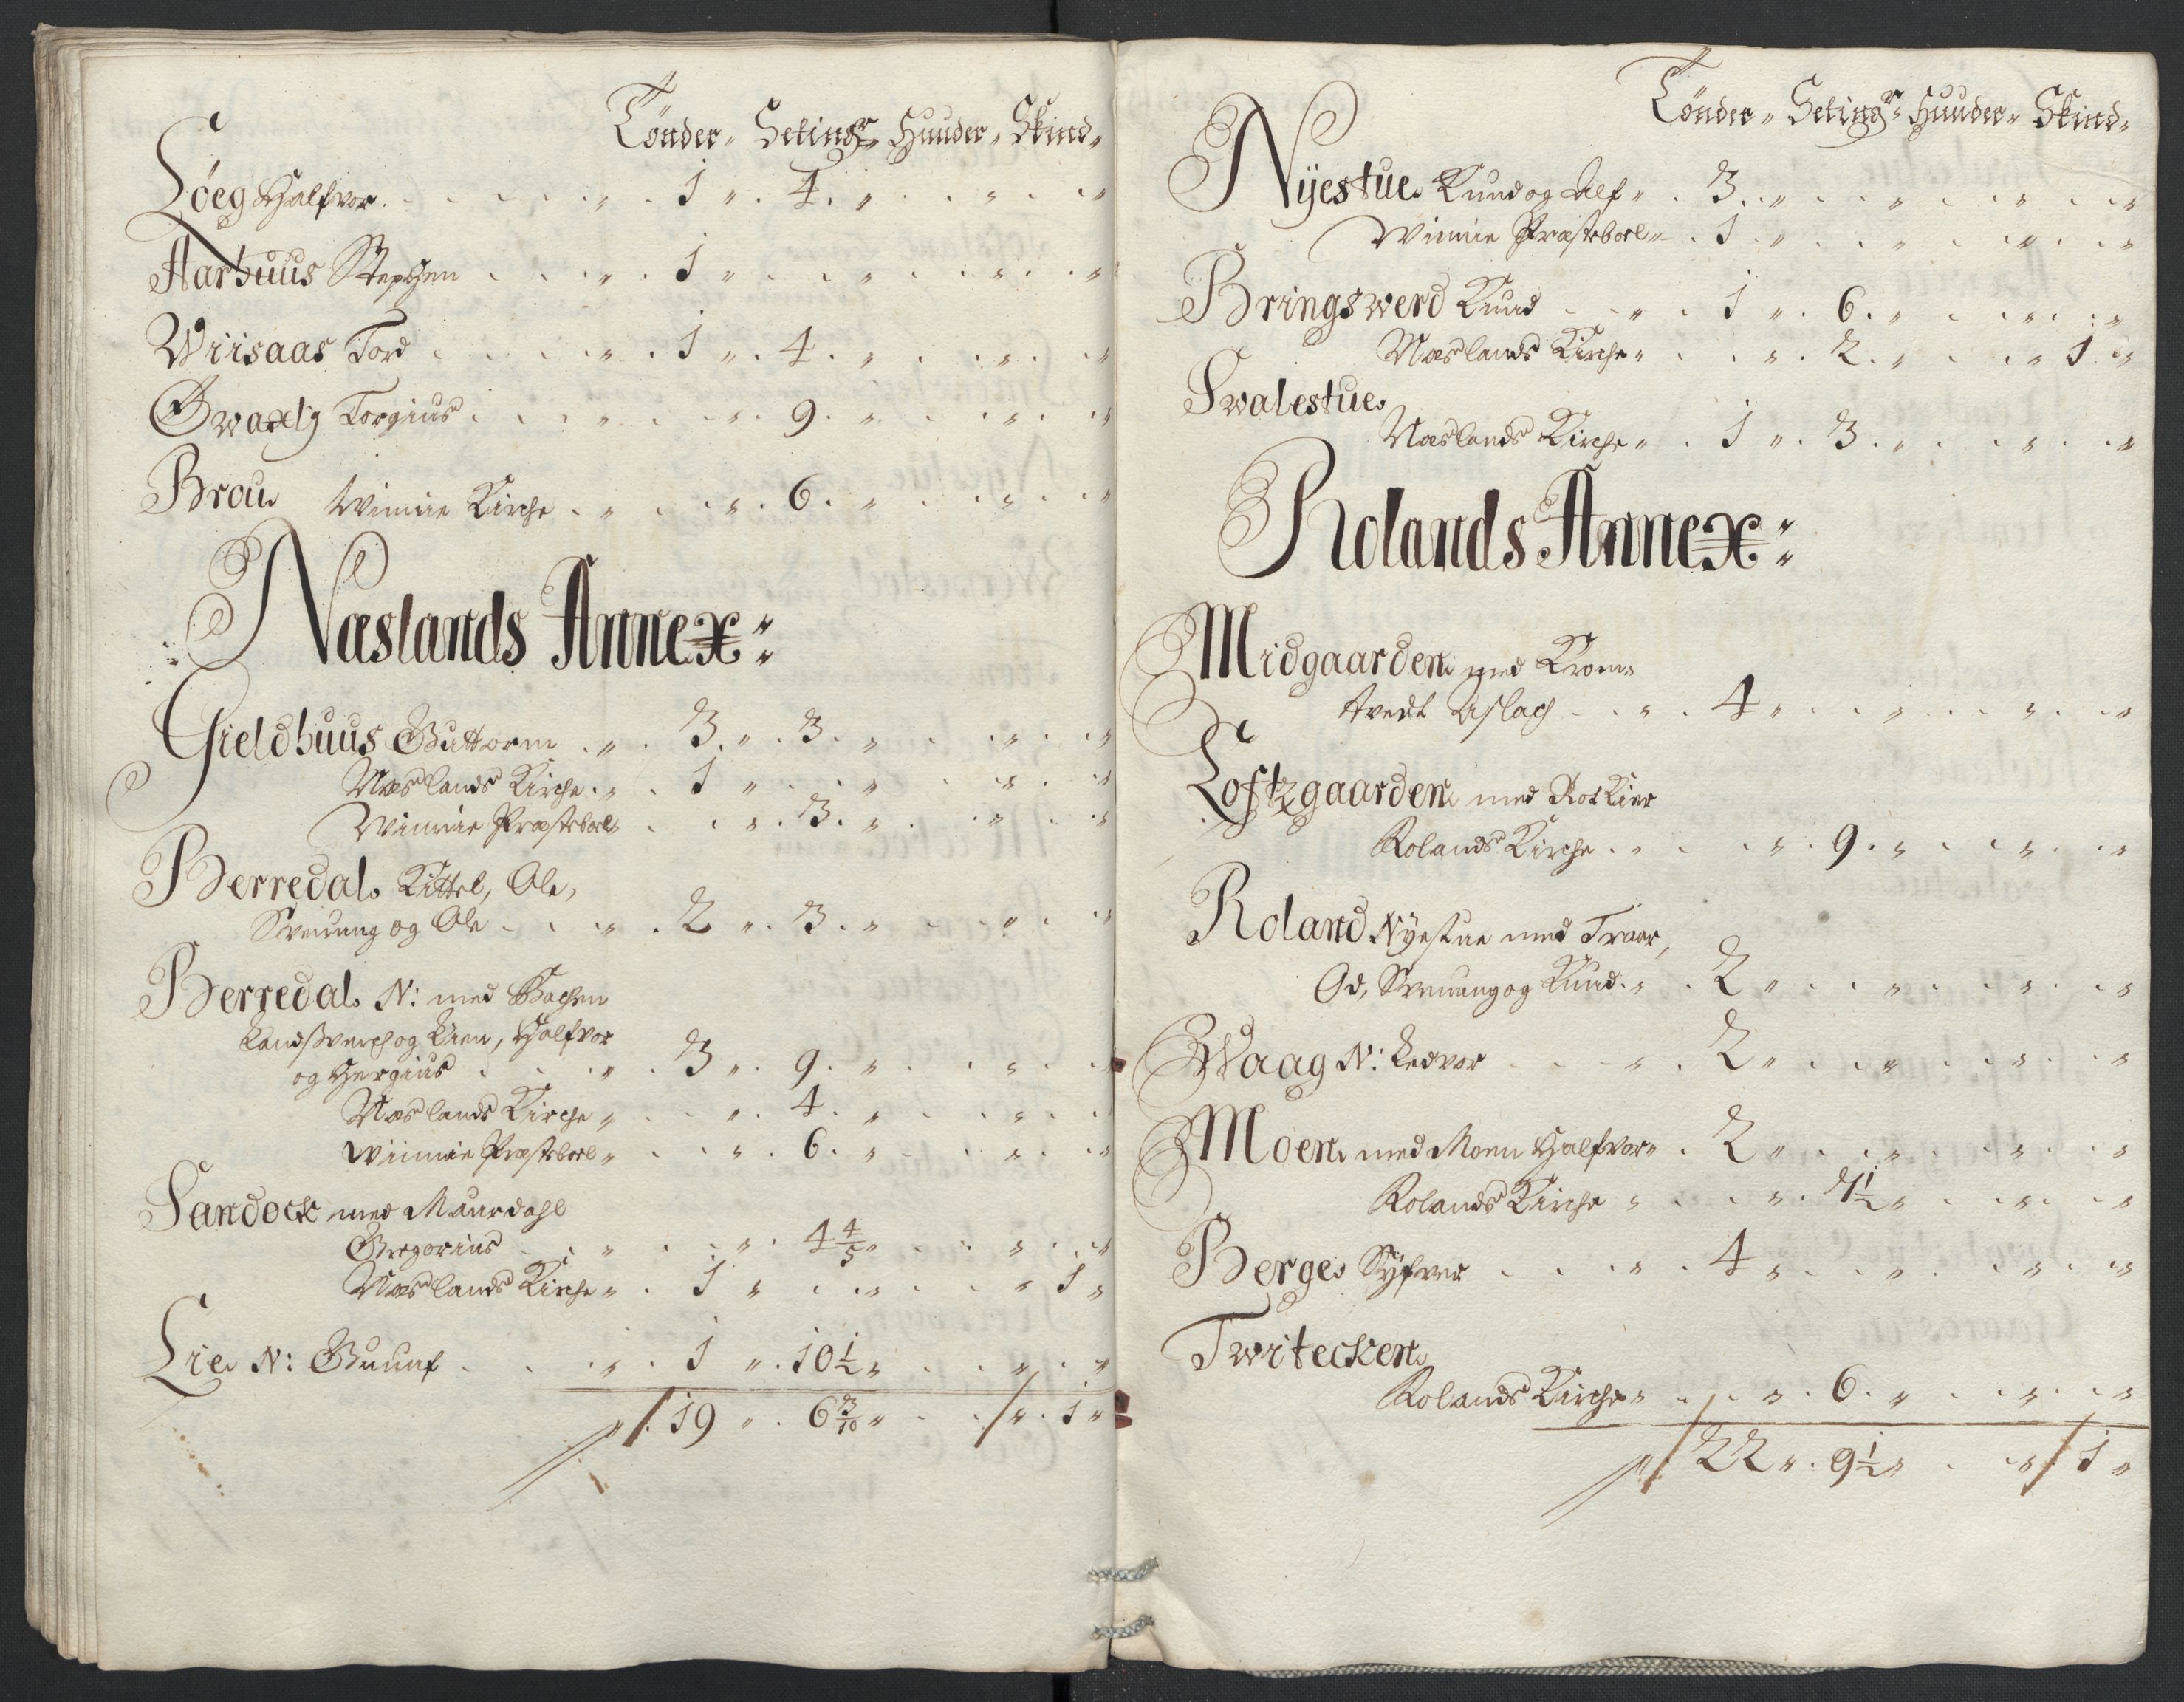 Tönder „ Setingr „ Huuder „ Skind „
Löeg Halfvor . . . „ . 1 „ . 4 . „ . . „ . . „
Aarhuus Stephen . . „ . 1 „ . . „ . . „ . . „
Wiisaas Tord . . . „ . 1 „ . 4 . „ . . „ . . „
Qwaalg Torgius . . . „ . . „ . 9 . „ . . „ . . „
Brou Winnie Kirche . „ . . „ . 6 . „ . . „ . . „
Næslands Annex :
Gieldhuus Guttorm . „ . 3 . „ . 3 . „ . . „ . . „
Næslands Kirche . „ . 1 „ . . „ . . „ . . „
Winnie Præsteboel . . „ . 3 . „ . . „ . . „
Berredal Kittel, Ole,
Svenung og Ole . . „ . 2 „ . 3 . „ . . „ . . „
Berredal N: med Bachen
og Lien, Halfvor
og Hergius . . . „ . 3 „ . 9 . „ . . „ . . „
Næslands Kirche „ . . „ . 4 . „ . . „ . . „
Winnie Præsteboel „ . . „ . 6 . „ . . „ . . „
Sandock med Maurdahl
Gregorius . . „ . . „ . 4 4/5 „ . . „ . . „
Næslands Kirche „ . 1 „ . . „ . . „ 1 „
Lie N: Gunnf . . . „ . 1 „ . 10 1/2 „ . . „ . „
„ 19 „ . 6 3/10 „ . . „ . 1 „
Tönder „ Setingr „ Huuder „ Skind „
Nÿestue Knud og Alf „ . 3 . „ . . „ . . „ . . „
Winnie Præsteboel „ . 1 . „ . . „ . . „ . . „
Bringswerd Knud . . „ . 1 „ . 6 . „ . . „ . . „
Næslands Kirche „ . . „ . 2 . „ . . „ 1 „
Swalestue
Næslands Kirche „ . 1 „ . 3 . „ . . „ . . „
Rolands Annex :
Midgaarden med Krom=
tvedt Aslach . . „ . 4 „ . . „ . . „ . . „
Loftzgaarden med Rotkier
Rolands Kirche . „ . . „ . 9 . „ . . „ . . „
Roland Nÿestue med Traar,
Od, Svenung og Knud . „ . 2 „ . . „ . . „ . . „
Waag N: Ledvor . . „ . 2 „ . . „ . . „ . . „
Moen med Moen Halfvor „ . 2 „ . . „ . . „ . . „
Rolands Kirche „ . . „ . 7 1/2 „ . . „ . . „
Berge Sÿfver . . . „ . 4 „ . . „ . . „ . . „
Twitecken
Rolands Kirche „ . . „ . 6 . „ . . „ . . „
„ 22 „ . 9 1/2 „ . . „ 1 „